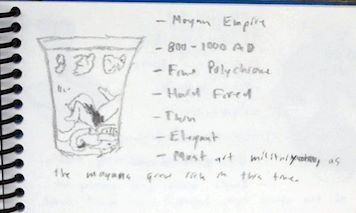 - Mayan Empire
- 800-1000 AD
- Fine Polychrome
- Hard Fired
- Thin
- Elegant
- Most art militry, as
the mayans grew rich in this time.